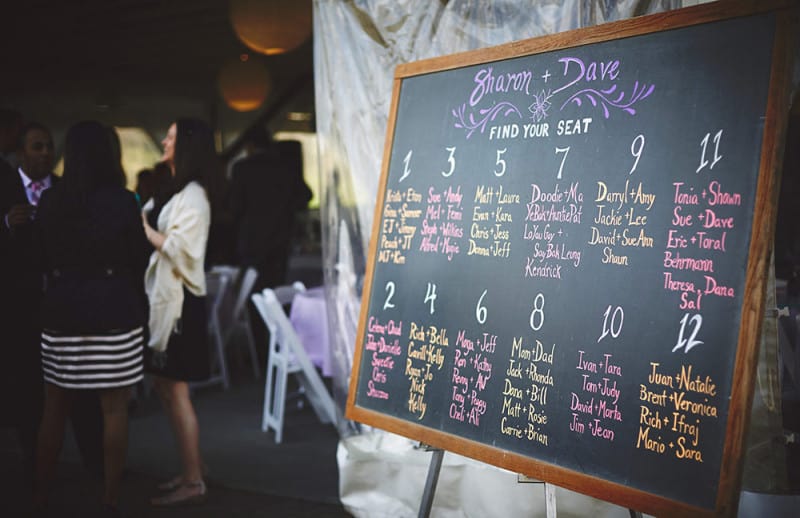 Sharon + Dave
FIND YOUR SEAT
1
Kristin + Eric
+ Sumair
ET + Jimmy
Peach + JT
+ Kim
3
Sue + Andy
Mel + Temi
Steph + Wilkis
Alfred + Nugia
5
Matt + Laura
Evan + Kara
Chris + Jess
Donna + Jeff
7
Doodie + Ma
YeBak + AuntiePat
LoYau Gay +
Say Bak Leung
Kendrick
9
Darryl + Amy
Jackie + Lee
David + SueAnn
Shaun
11
Tonia + Shawn
Sue + Dave
Eric + Toral
Behrmann
Theresa, Dana
Sal
2
Celena + Chad
+ Danielle
Sweetie
Chris
Shazzie
4
Rich + Bella
+ Kelly
Ryan + Jo
Nick
Kelly
6
Moga + Jeff
Ron + Kathy
Penny + AW
Tony + Peggy
Cheli + Ali
8
Mom + Dad
Jack + Rhonda
Dana + Bill
Matt + Rosie
Carrie + Brian
10
Ivan + Tara
Tom + Judy
David + Marta
Jim + Jean
12
Juan + Natalie
Brent + Veronica
Rich + Ifraj
Mario + Sara